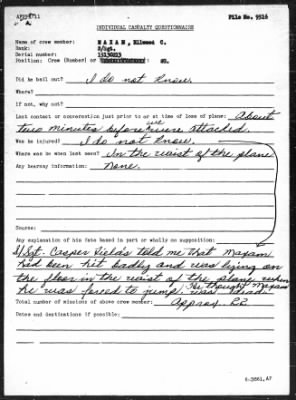 File No. 5516
INDIVIDUAL CASUALTY QUESTIONNAIRE
Name of crew member: MAXAM, Ellwood C.
Rank: S/Sgt.
Serial number:
Position: Crew (Number) or
Did he bail out? I do not know.
Where?
If not, why not?
Last contact or conversation just prior to or at time of loss of plane: About
two minutes before we were attacked.
Was he injured? I do not know.
Where was he when last seen? In the waist of the plane
Any hearsay information: None.
Source:
Any explanation of his fate based in part or wholly on supposition:
S/Sgt. Casper Fields told me that Maxam
had been hit badly and was lying on
the floor in the waist of the plane when
he was forced to jump. He thought Maxam was dead.
Total number of missions of above crew member: Approx. 22
Dates and destinations if possible:
6-3861,AF